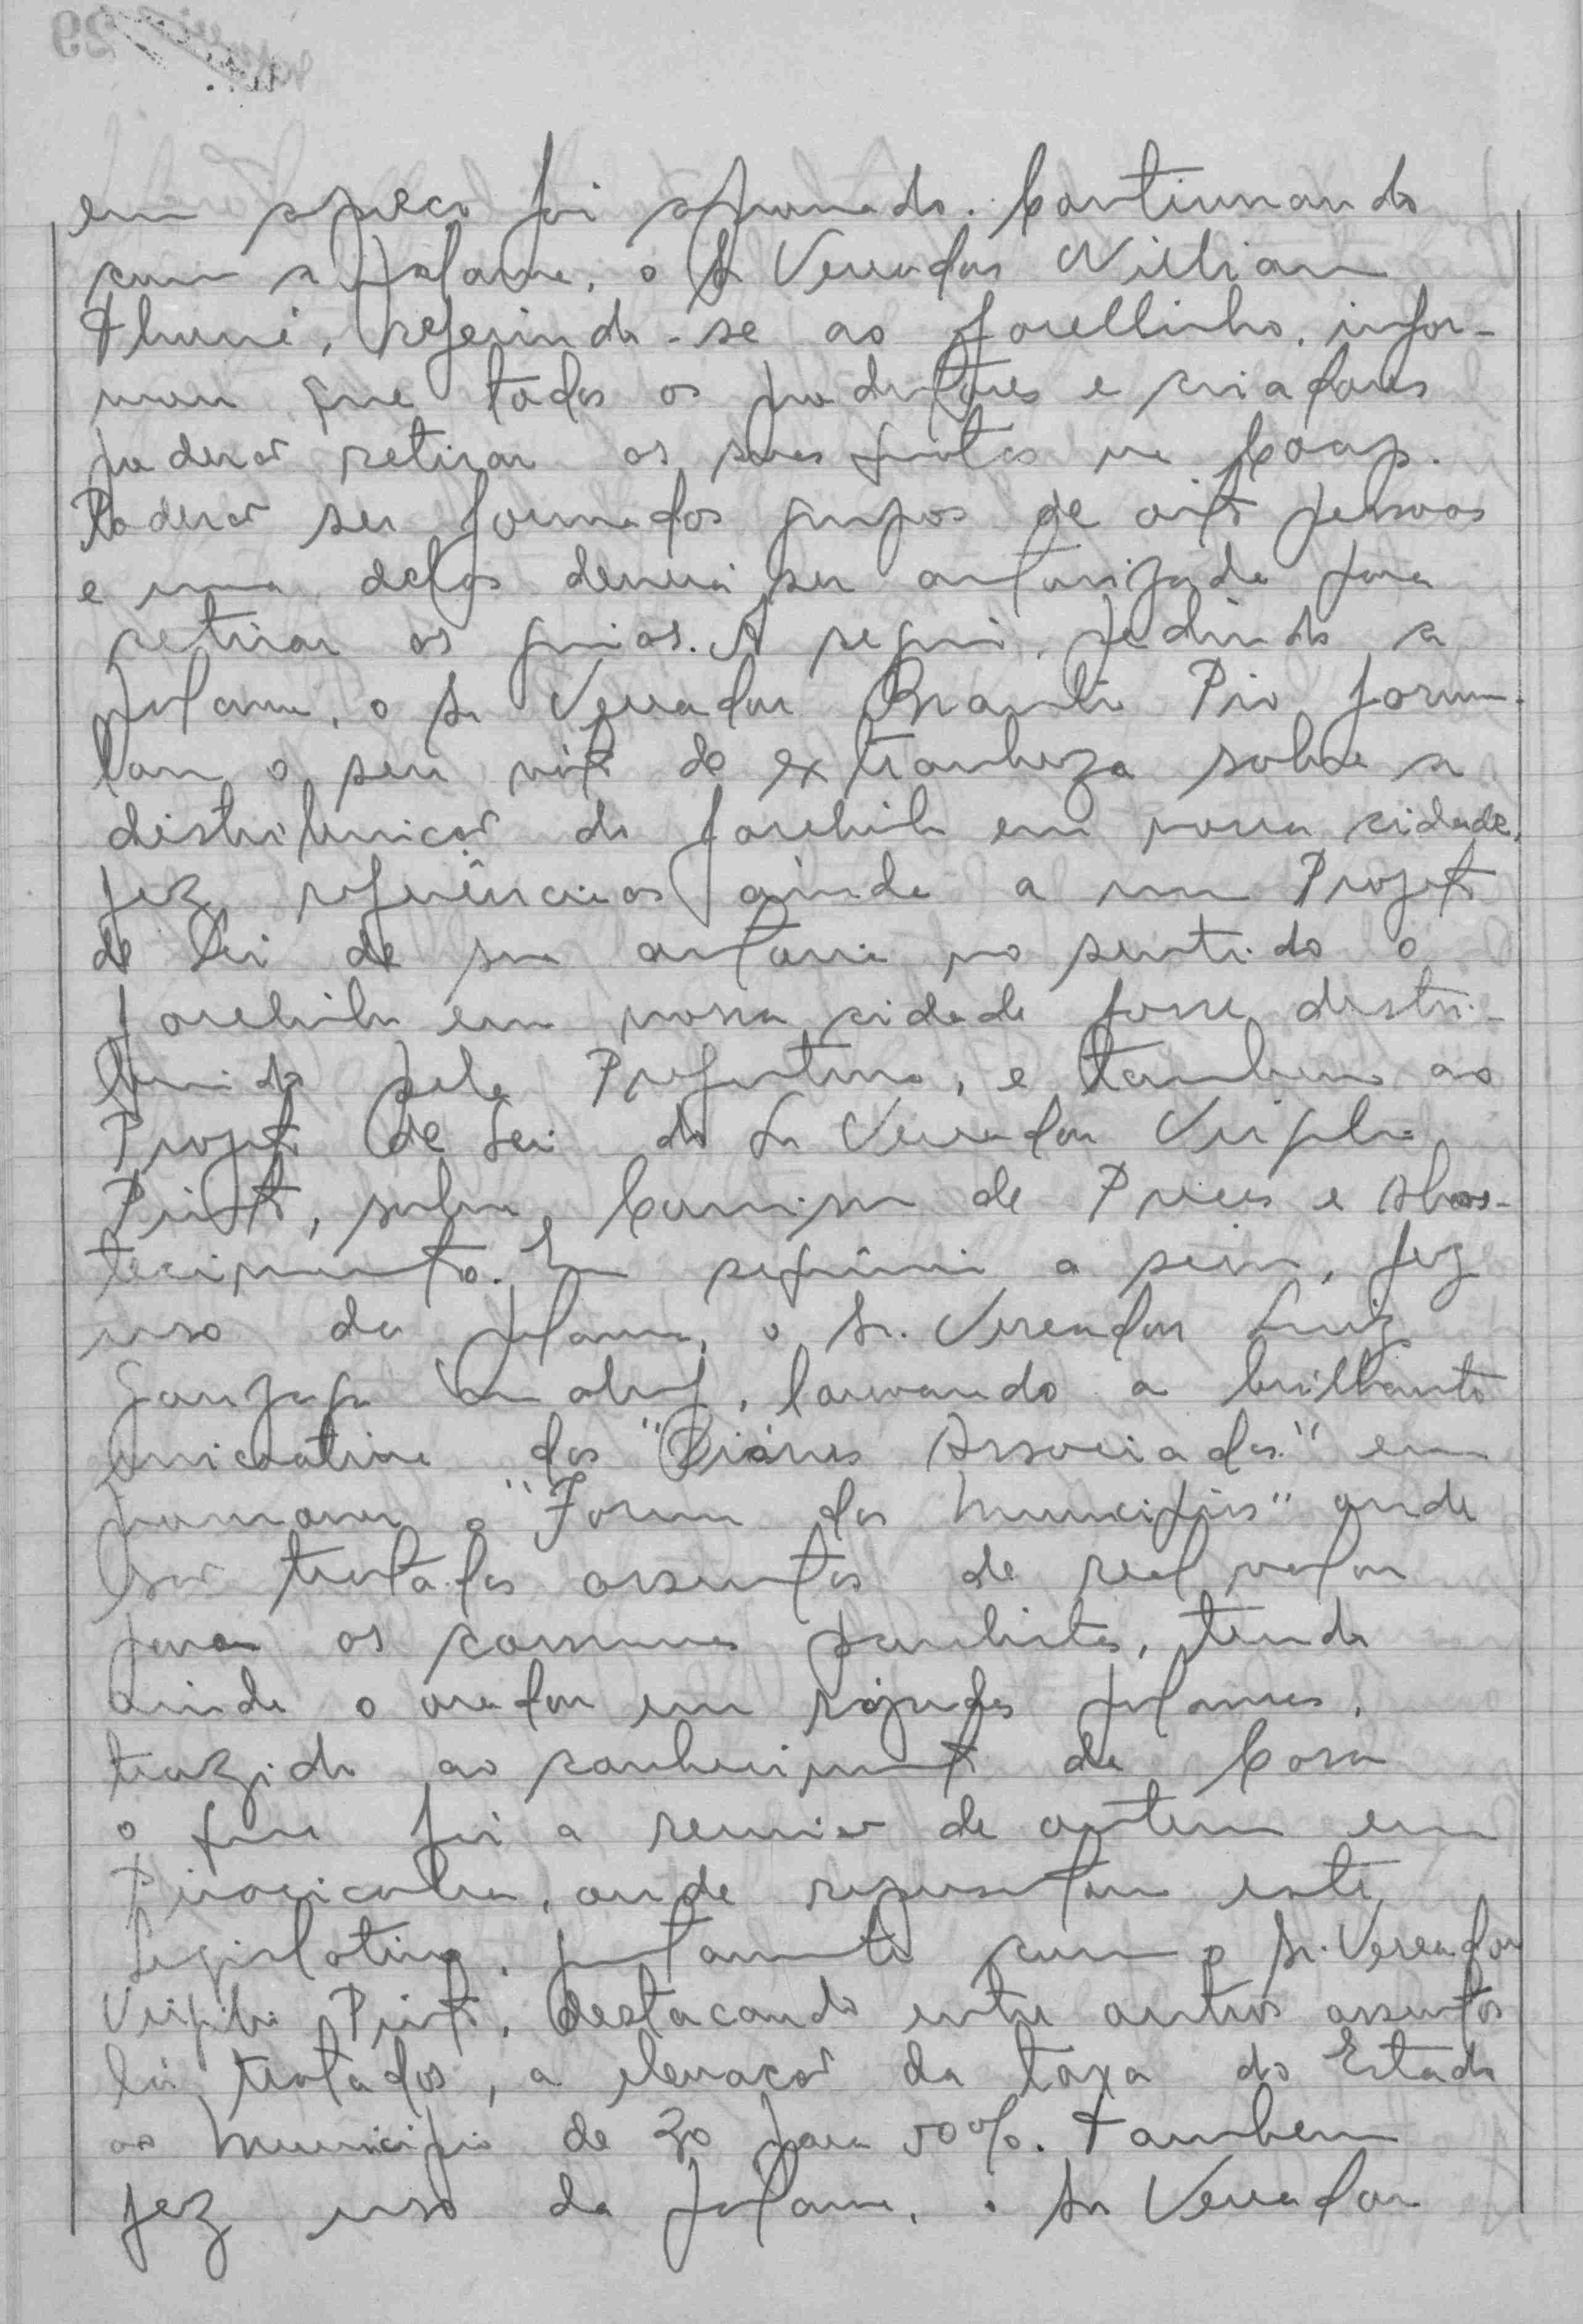 em apreço foi aprovado. Continuando
com a palavra, o Sr Vereador Willian
referindo-se ao farellinho, infor-
mou que todos os produtores e criadores
poderão retirar as suas quotas na Coap.
Poderão ser formados grupos de oito pessoas
e uma delas deverá ser autorizada para
retirar as guias. A seguir, pedindo a
palavra, o Sr Vereador Pio formu-
lou o seu voto de extranheza sobre a
distribuição do farelinho em nossa cidade,
fez referências ainda a um Projeto
de Lei de sua autoria no sentido o
farelinho em nossa cidade fosse distri-
buido pela Prefeitura, e tambem ao
Projeto de Lei do Sr Vereador Virgilio
Pinto, sobre Comissão de Preços e Abas-
tecimento. Em seguimento a sessão, fez
uso da palavra, o Sr. Vereador Luiz
Gonzaga, louvando a brilhante
iniciativa dos "Diários Associados" em
promover o "Forum dos Municipios" onde
são tratados assuntos de real valor
para as comunas paulistas, tendo
ainda o orador em rápidas palavras,
trazido ao conhecimento da Casa
o que foi a reunião de ontem em
Piracicaba, onde representou este
Legislativo, juntamente com o Sr. Vereador
Virgilio Pinto, destacando entre outros assuntos
lá tratados, a elevação da taxa do Estado
ao Municipio de 30 para 50%. Tambem
fez uso da palavra, o Sr Vereador